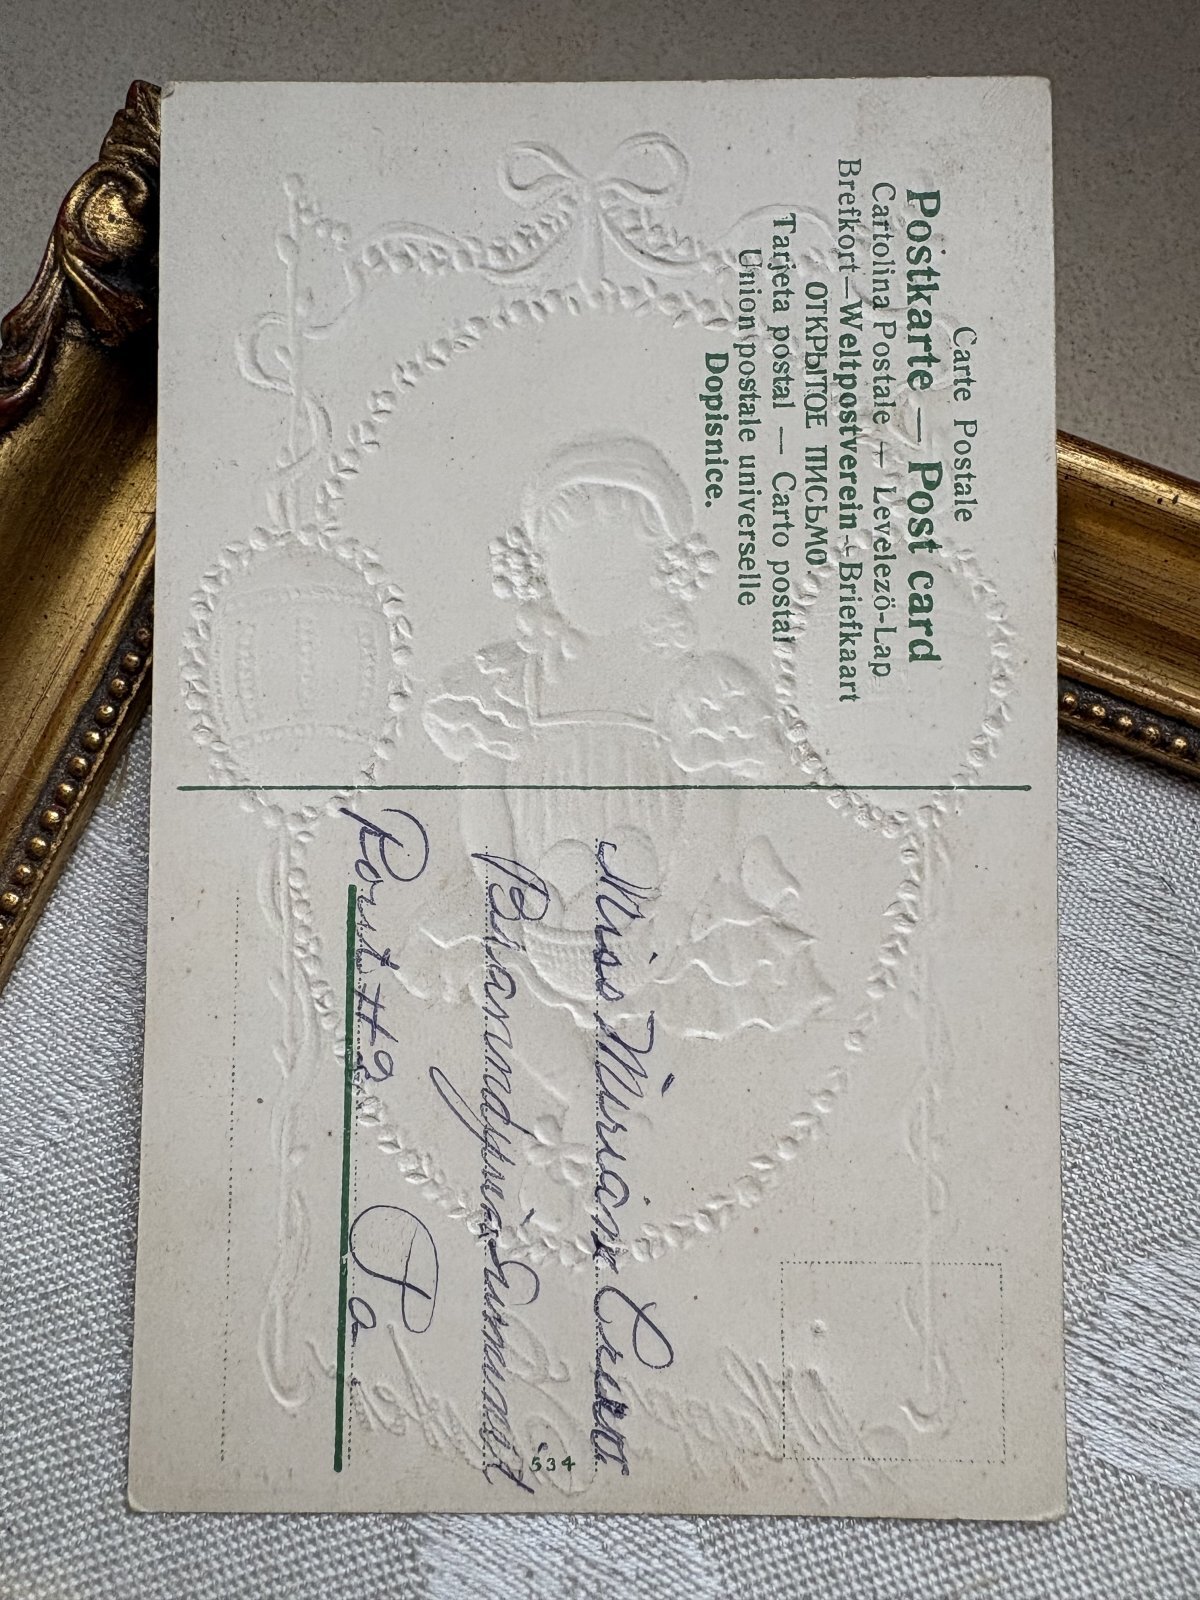 Carte Postale
Postkarte — Post card
Cartolina Postale — Levelező-Lap
Brefkort—Weltpostverein—Briefkaart
ОТКРЫТОЕ ПИСЬМО
Tarjeta postal — Carto postal
Union postale universelle
Dopisnice.
Miss Miriam
Brandywine Summit
Port #2 Pa
534